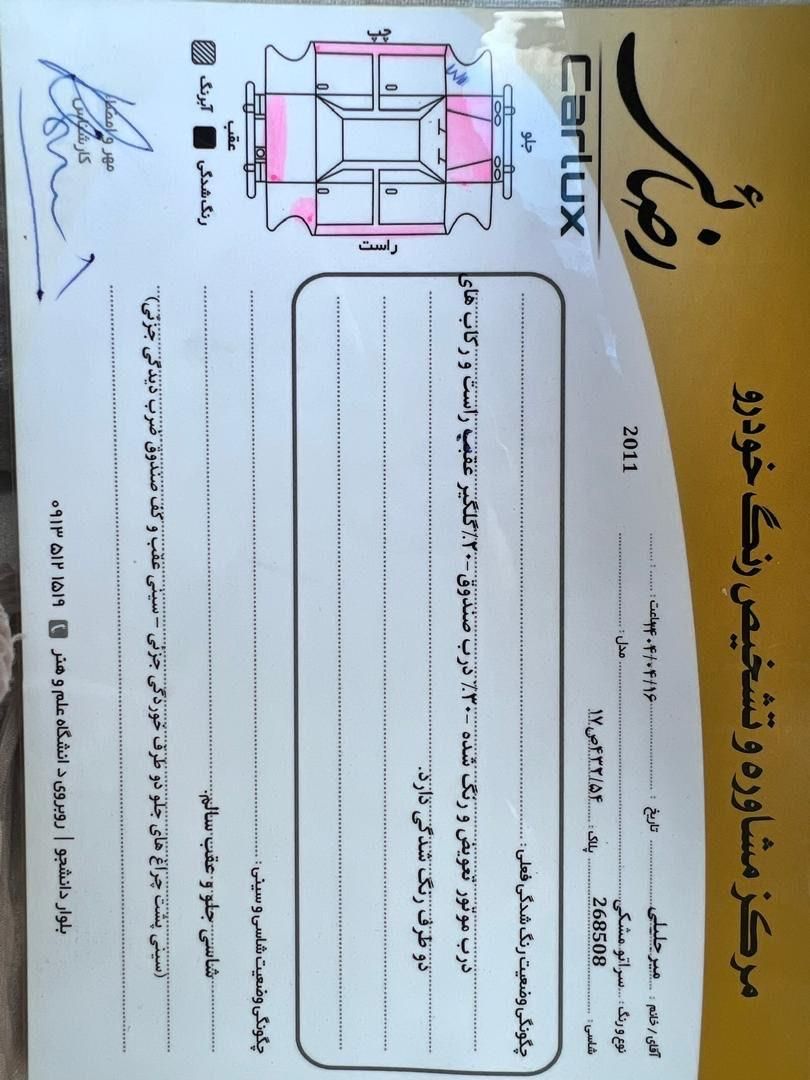 مرکز مشاوره و تشخیص رنگ خودرو
رضائی
Carlux
آقای / خانم : میرجلیلی تاریخ : ۱۴۰۴/۰۴/۱۶ ساعت : :
نوع و رنگ : سراتو مشکی مدل : 2011
شاسی : 268508 پلاک : ۱۷ص۴۳۲/۵۴
چگونگی وضعیت رنگ شدگی فعلی :
درب موتور تعویض و رنگ شده -۳۰٪ درب صندوق -۲۰٪ گلگیر عقب راست و رکاب های
دو طرف رنگ شدگی دارد.
چگونگی وضعیت شاسی و سینی :
شاسی جلو و عقب سالم.
(سینی پشت چراغ های جلو دو طرف خوردگی جزئی - سینی عقب و کف صندوق ضرب دیدگی جزئی)
جلو
چپ
راست
عقب
رنگ شدگی
آبرنگ
مهر و امضاء
کارشناس
بلوار دانشجو | روبروی دانشگاه علم و هنر ۰۹۱۳ ۵۱۲ ۱۵۱۹